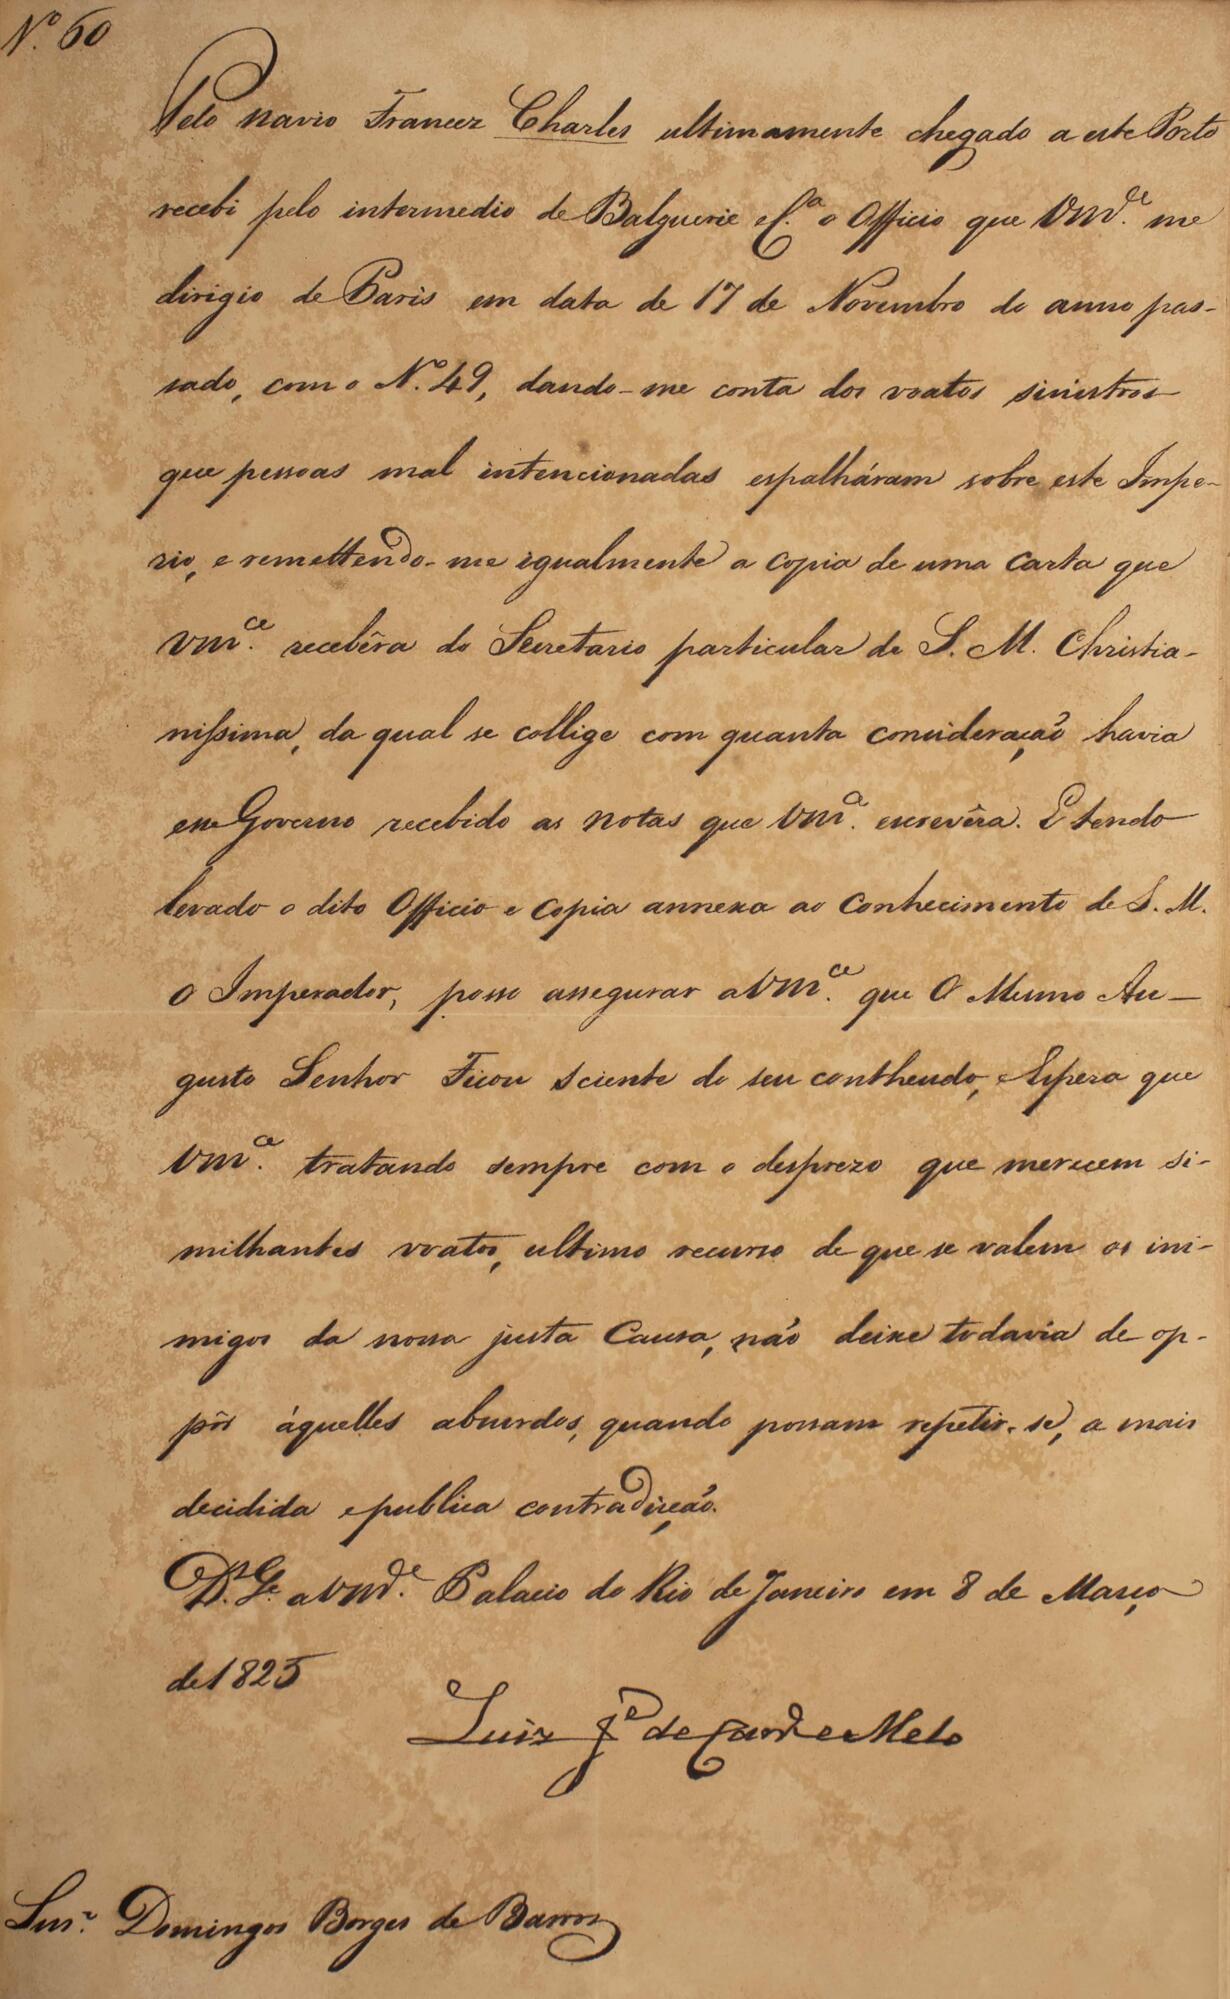 Nº. 60
Pelo navio Francez Charles ultimamente chegado a este Porto
recebi pelo intermedio de Balguerie e C.ª o Officio que Vm.ce me
dirigio de Paris em data de 17 de Novembro do anno pas-
sado, com o Nº. 49, dando-me conta dos voatos sinistros
que pessoas mal intencionadas espalháram sobre este Impe-
rio, e remettendo-me igualmente a copia de uma carta que
Vm.ce recebêra do Secretario particular de S. M. Christia-
nissima, da qual se collige com quanta consideração havia
esse Governo recebido as notas que Vm.ce escrevêra. E tendo
levado o dito Officio e copia annexa ao Conhecimento de S. M.
O Imperador, posso assegurar a Vm.ce que O Mesmo Au-
gusto Senhor Ficou Sciente do seu contheudo, e Espera que
Vm.ce tratando sempre com o desprezo que merecem si-
milhantes voatos, ultimo recurso de que se valem os ini-
migos da nossa justa Causa, não deixe todavia de op-
pôr áquelles absurdos, quando possam repetir-se, a mais
decidida e publica contradicção.
D.s G.e a Vm.ce Palacio do Rio de Janeiro em 8 de Março
de 1825
Luiz J.e de Carv.o e Melo
Snr. Domingos Borges de Barros